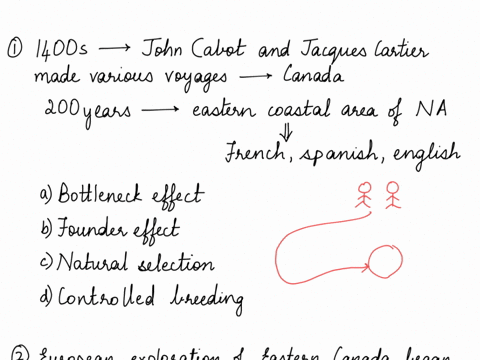 ① 1400s → John Cabot and Jacques Cartier
made various voyages → Canada
200 years → eastern coastal area of NA
⇓
French, spanish, english
a) Bottleneck effect
b) Founder effect
c) Natural selection
d) Controlled breeding
② European exploration of Eastern Canada began